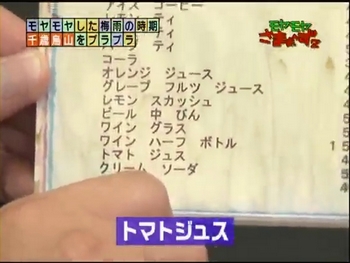 モヤモヤした梅雨の時期
千歳烏山をブラブラ
モヤモヤ
さまぁ〜ず2
アイス コーヒー
ティ
ティ
コーラ
オレンジ ジュース
グレープ フルツ ジュース
レモン スカッシュ
ビール 中 びん
ワイン グラス
ワイン ハーフ ボトル
トマト ジュス
クリーム ソーダ
トマトジュス